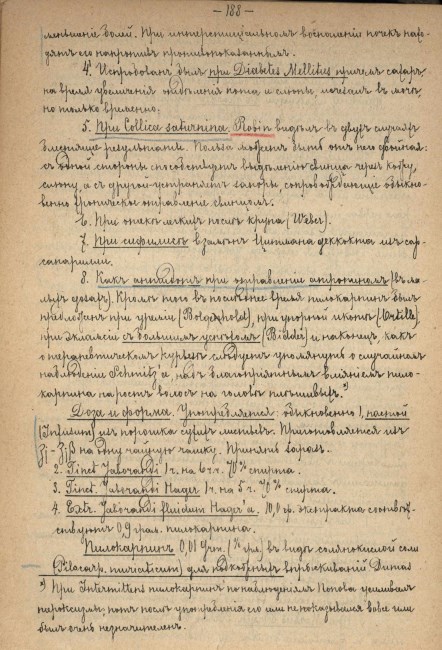 - 188 -
меньшение болей. При интерстициальномъ воспаленіи почекъ нахо-
дятъ его напротивъ противопоказаннымъ.
4. Испробованъ былъ при Diabetes Mellitus причемъ сахаръ,
на время увеличенія отдѣленія пота и слюны, исчезалъ въ мочѣ,
но только временно.
5. При Collica saturnina Robin видѣлъ въ двухъ случаяхъ
блестящіе результаты. Польза можетъ быть отъ него двойная:
съ одной стороны способствуетъ выдѣленію свинца черезъ кожу,
слюну, а съ другой устраняетъ запоры, сопровождающіе обыкно-
венно хроническое отравленіе свинцомъ.
6. При отекѣ легкихъ послѣ крупа (Weber).
7. При сифилисѣ взамѣнъ Цитмана декокта изъ сар-
сапарилли.
8. Какъ антидотъ при отравленіи атропиномъ (въ ма-
лыхъ дозахъ). Кромѣ того въ послѣднее время пилокарпинъ былъ
предложенъ при уреміи (Boegehold), при упорной икотѣ (Ortille),
при эклампсіи съ большимъ успѣхомъ (Bidder) и наконецъ, какъ
о терапевтическомъ курьезѣ слѣдуетъ упомянуть о случайномъ
наблюденіи Schmitz'а, надъ благопріятнымъ вліяніемъ пило-
карпина на ростъ волосъ на головѣ плѣшивыхъ.*)
Доза и форма. Употребляется: обыкновенно 1, настой
(Infusum) изъ порошка сухихъ листьевъ. Приготовляется изъ
ʒj - ʒjβ на одну чайную чашку. Принять заразъ.
2. Tinct. Jaborandi 1 ч. на 6 ч. 70% спирта.
3. Tinct. Jaborandi Hager 1 ч. на 5 ч. 70% спирта.
4. Extr. Jaborandi fluidum Hager'a. 10,0 гр. экстракта соотвѣт-
ствуютъ 0,9 грам. пилокарпина.
Пилокарпинъ 0,01 въ видѣ солянокислой соли
Pilocarp. muriaticum для подкожныхъ впрыскиваній Dumas
*) При Intermittens пилокарпинъ по наблюденіямъ Попова усиливаетъ
пароксизмы: потъ послѣ употребленія его или не показывался вовсе или
былъ очень незначителенъ.